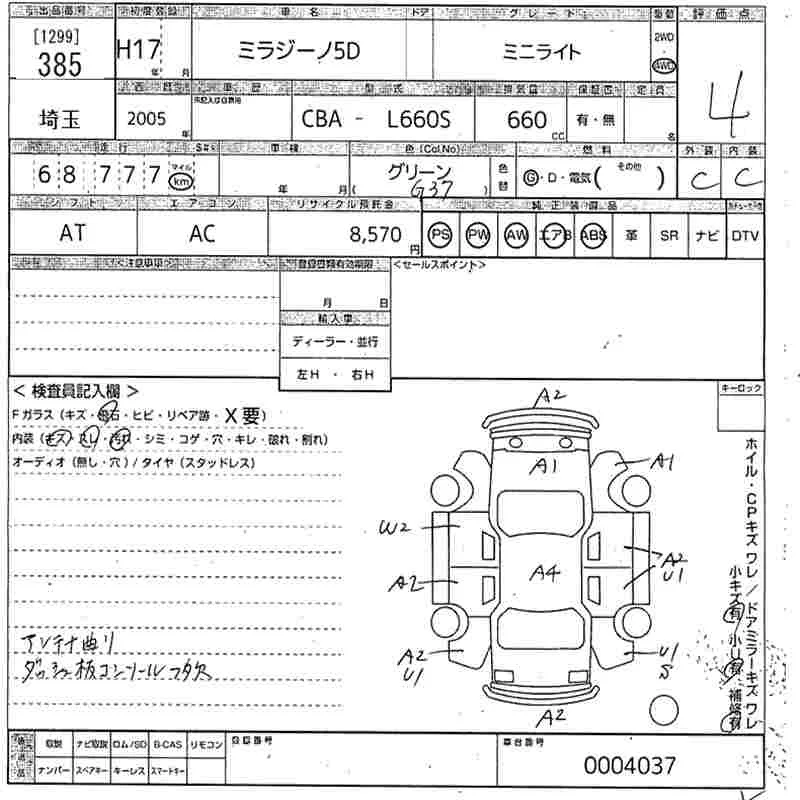 出品番号 初度登録 車名 ドア グレード 駆動 評価点
[1299]
385
H17 年 月
ミラジーノ5D
ミニライト
2WD
4WD
4
車歴 型式 排気量 定員
埼玉
2005 年
CBA - L660S
660 CC
有・無
名
走行 車検 色(Col.No) 燃料 外装 内装
68777
マイル
km
年 月
グリーン
( G37 )
色替
G・D・電気( その他 )
C
C
シフト エアコン リサイクル預託金 純正装備品
AT
AC
8,570 円
PS PW AW エアB ABS 革 SR ナビ DTV
<注意事項>
登録書類有効期限
<セールスポイント>
月 日
輸入車
ディーラー・並行
左H ・ 右H
< 検査員記入欄 >
キーロック
Fガラス(キズ・飛石・ヒビ・リペア跡・X要)
内装(キズ・スレ・汚れ・シミ・コゲ・穴・キレ・破れ・割れ)
オーディオ(無し・穴)/タイヤ(スタッドレス)
A2
A1
A1
W2
A2
U1
A4
A2
A2
U1
U1
S
A2
ホイル・CPキズ ワレ/ドアミラーキズ ワレ
小キズ有 小U有 補修有
アンテナ曲り
ダッシュ板コンソールフタ欠
取説 ナビ取説 ロム/SD B-CAS リモコン
登録番号
車台番号
ナンバー スペアキー キーレス スマートキー
0004037